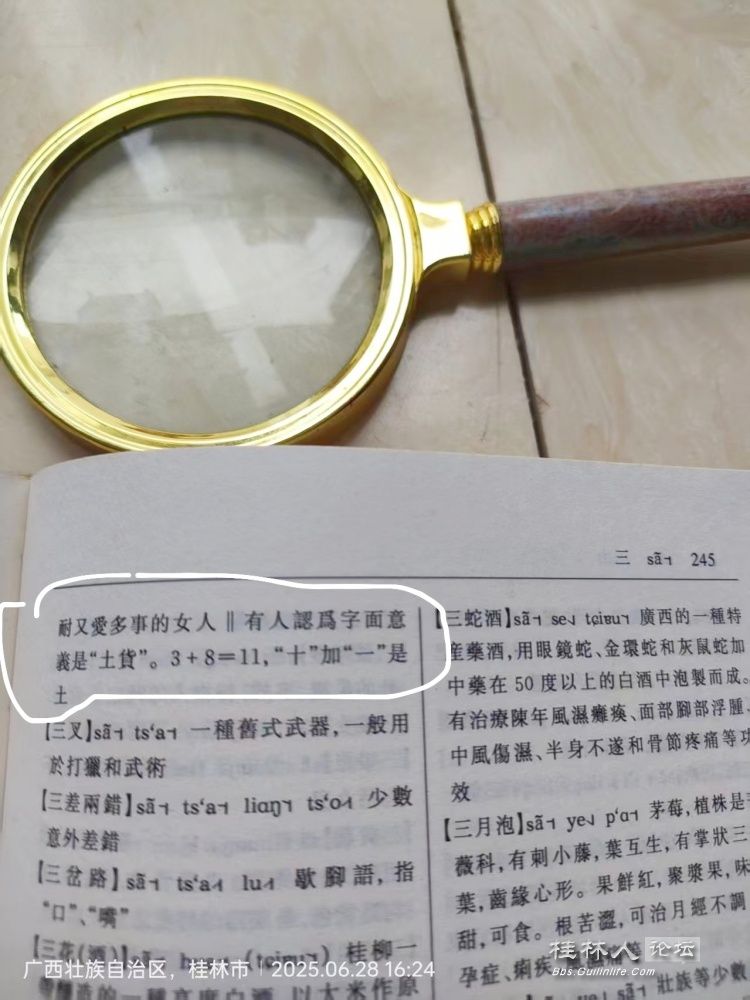 三 sã˧ 245
耐又愛多事的女人‖有人認爲字面意
義是“土貨”。3+8=11,“十”加“一”是
土
【三叉】sã˧ tsʻa˧ 一種舊式武器,一般用
於打獵和武術
【三差兩錯】sã˧ tsʻa˧ liaŋ˥ tsʻo˨˦ 少數
意外差錯
【三岔路】sã˧ tsʻa˨˦ lu˨˦ 歇腳語,指
“口”、“嘴”
【三花(酒)】桂柳一
白酒,以大米作原
【三蛇酒】sã˧ se˨˩ tɕiəu˥ 廣西的一種特
産藥酒,用眼鏡蛇、金環蛇和灰鼠蛇加
中藥在50度以上的白酒中泡製而成。
有治療陳年風濕癱瘓、面部腳部浮腫、
中風傷濕、半身不遂和骨節疼痛等功
效
【三月泡】sã˧ ye˨˩ pʻɑ˧ 茅莓,植株是
薇科,有刺小藤,葉互生,有掌狀三
葉,齒緣心形。果鮮紅,聚漿果,味
甜,可食。根苦澀,可治月經不調
孕症、痢疾
壯族等少數
广西壮族自治区,桂林市 | 2025.06.28 16:24
桂林人论坛
Bbs.Guilinlife.com